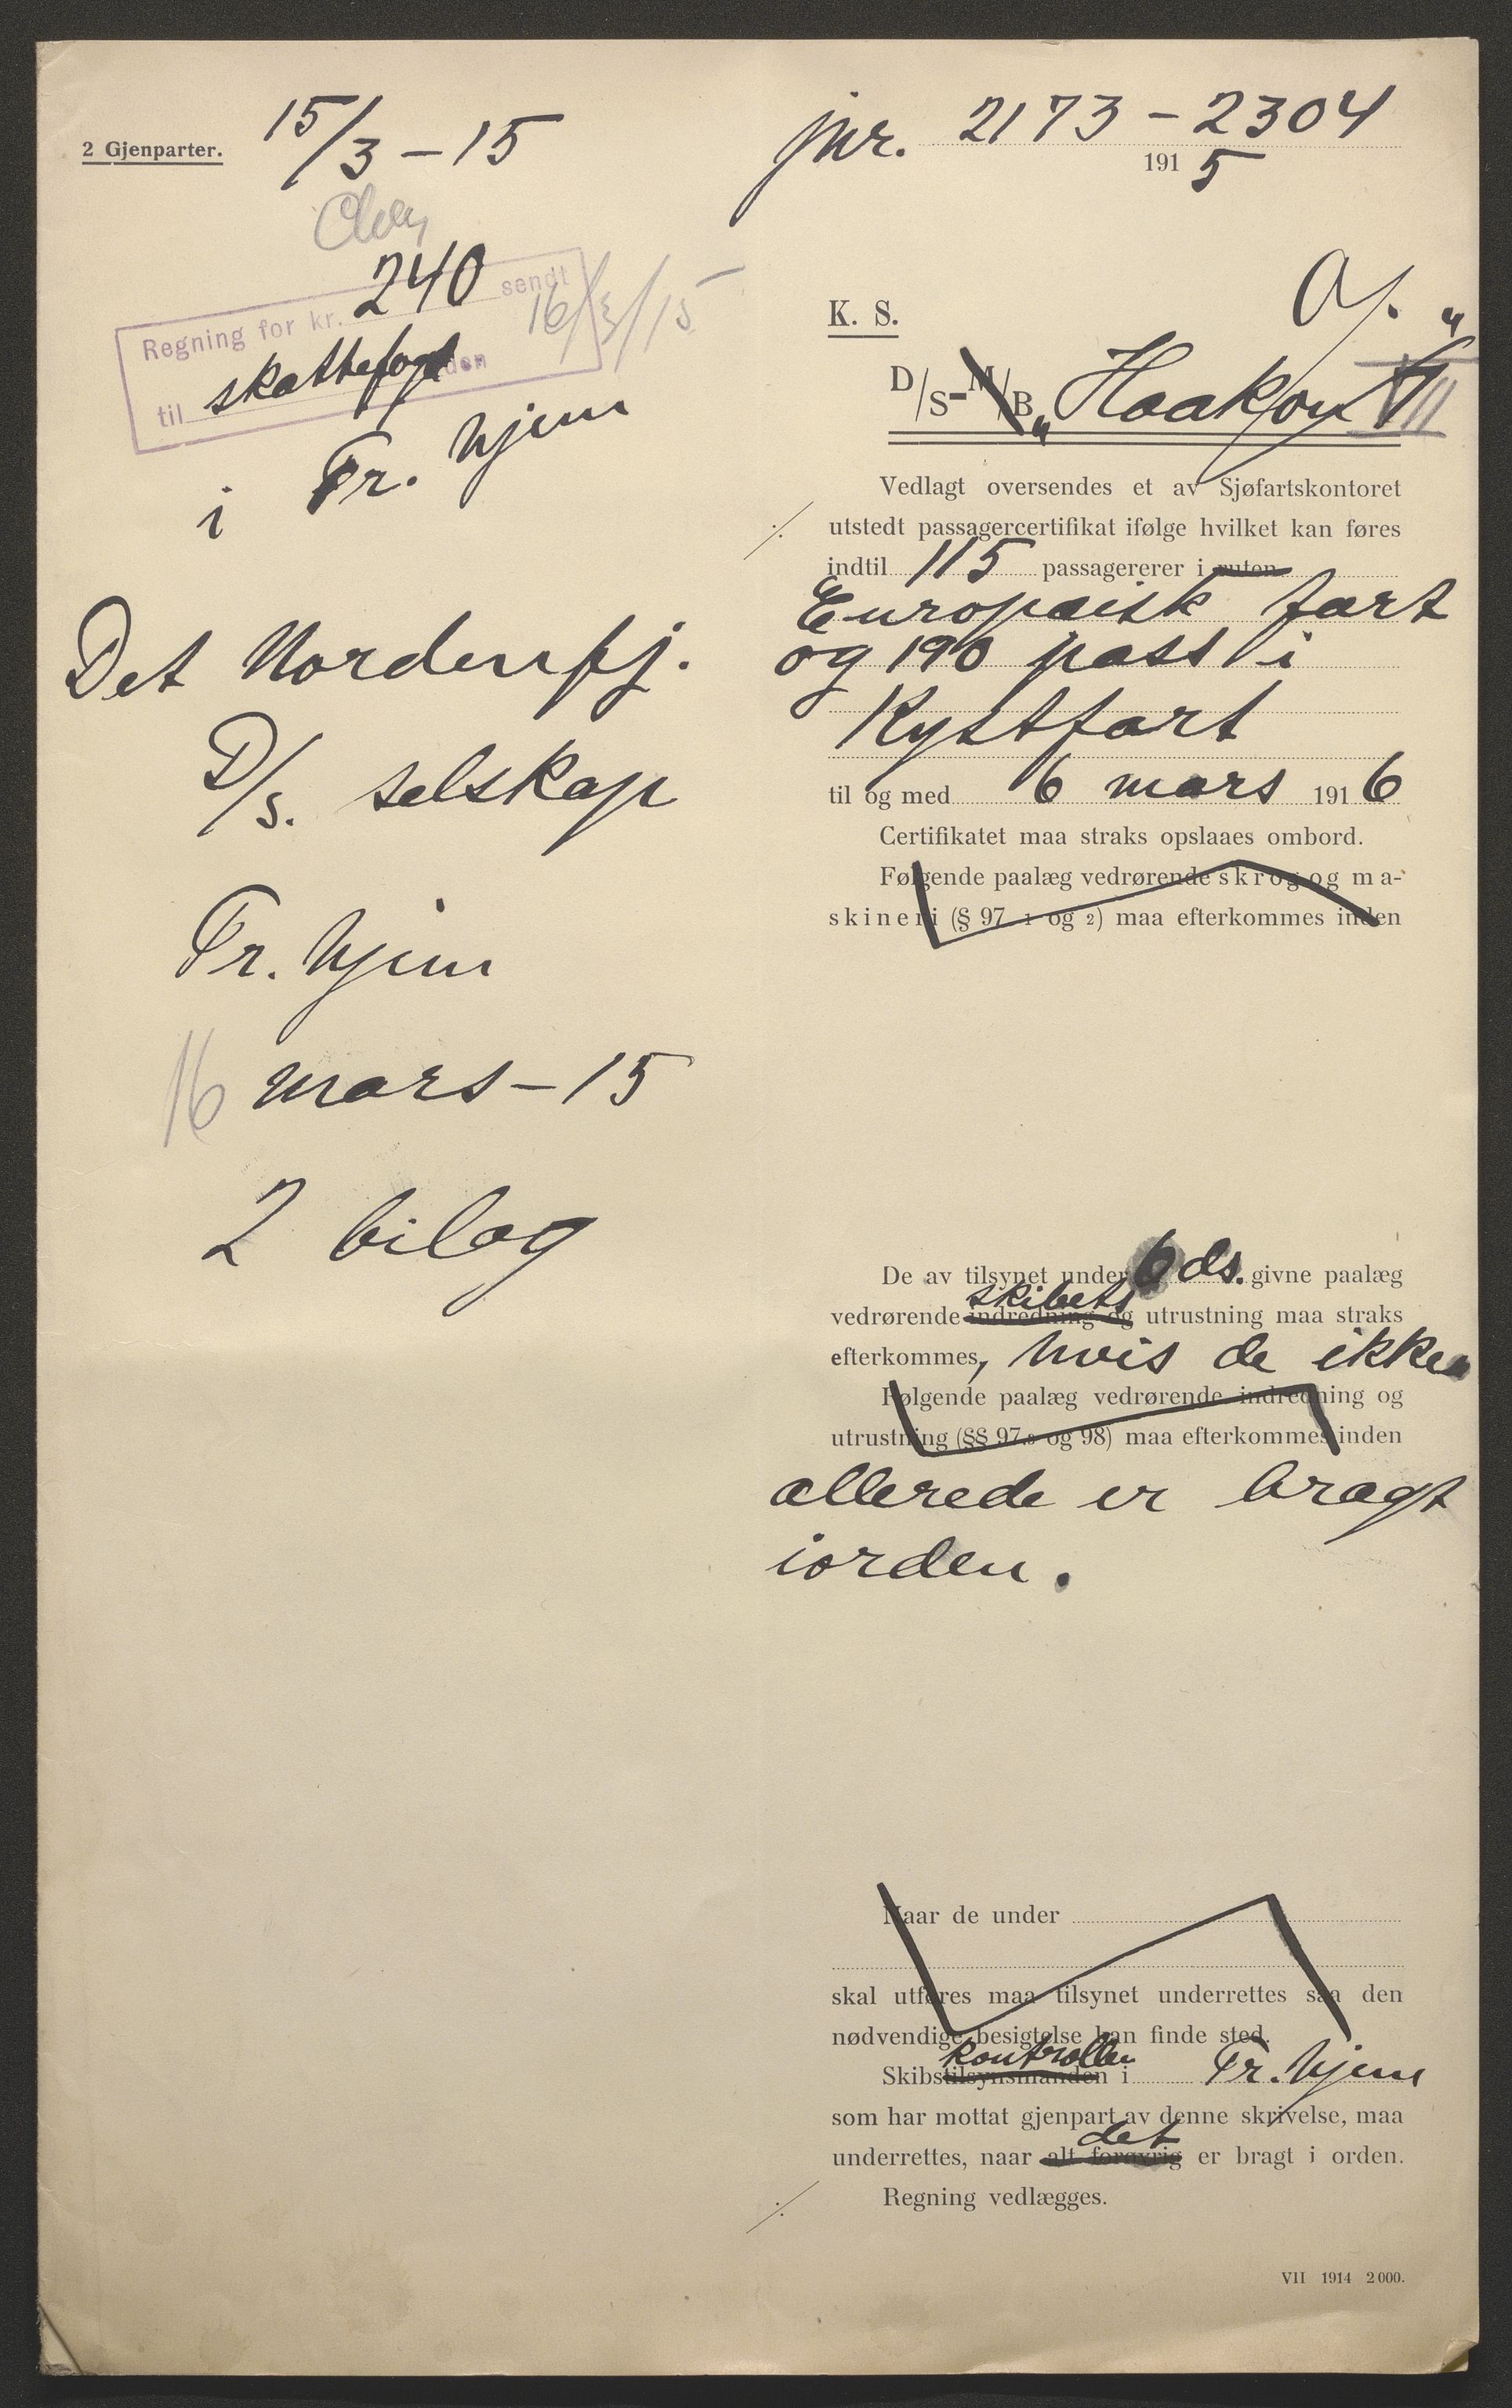 2 Gjenparter.
15/3 – 15
jnr. 2173 – 2304
191 5
Regning for kr. 240 sendt
16/3/15
til skattefogden
i Tr. hjem
K. S.
D/S-M/B „Haakon VII"
Vedlagt oversendes et av Sjøfartskontoret
utstedt passagercertifikat ifølge hvilket kan føres
indtil 115 passagererer i ruten
Europæisk fart
og 190 pass i
Kystfart
til og med 6 mars 191 6
Certifikatet maa straks opslaaes ombord.
Følgende paalæg vedrørende skrog og ma-
skineri (§ 97 1 og 2) maa efterkommes inden
Det Nordenfj.
D/s. selskap
Tr. hjem
16 mars – 15
2 bilag
De av tilsynet under 6 ds. givne paalæg
skibets
vedrørende indredning og utrustning maa straks
efterkommes, hvis de ikke
Følgende paalæg vedrørende indredning og
utrustning (§§ 97.3 og 98) maa efterkommes inden
allerede er bragt
iorden.
Naar de under
skal utføres maa tilsynet underrettes saa den
nødvendige besigtelse kan finde sted.
kontrollen
Skibstilsynsmanden i Tr. hjem
som har mottat gjenpart av denne skrivelse, maa
det
underrettes, naar alt forøvrig er bragt i orden.
Regning vedlægges.
VII 1914 2000.